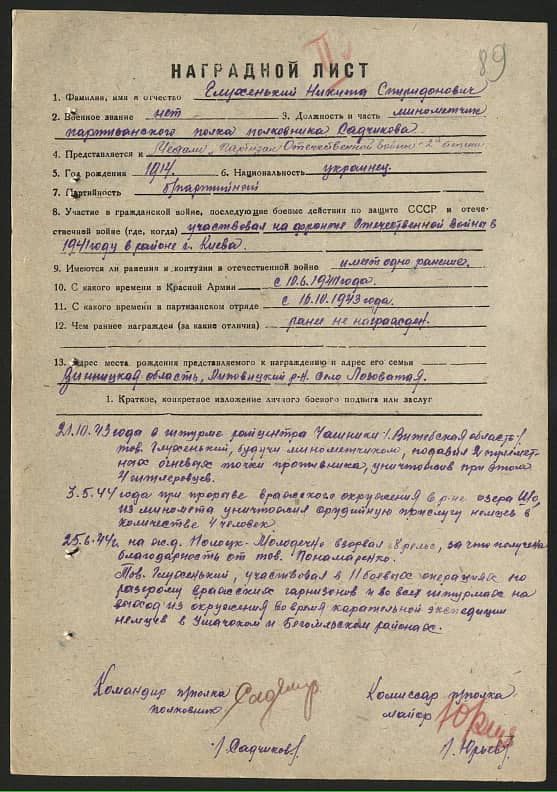 II
89
НАГРАДНОЙ ЛИСТ
1. Фамилия, имя и отчество Глухенький Никита Спиридонович
2. Военное звание нет 3. Должность и часть минометчик
партизанского полка полковника Садчикова
4. Представляется к Медали „Партизан Отечественной войны" 2й степени
5. Год рождения 1914 6. Национальность украинец
7. Партийность б/партийный
8. Участие в гражданской войне, последующие боевые действия по защите СССР и отече-
ственной войне (где, когда) участвовал на фронте Отечественной войны в
1941 году в районе г. Киева.
9. Имеются ли ранения и контузии в отечественной войне имеет одно ранение.
10. С какого времени в Красной Армии с 10.6.1941 года.
11. С какого времени в партизанском отряде с 16.10.1943 года.
12. Чем ранее награжден (за какие отличия) ранее не награжден.
13. Адрес места рождения представляемого к награждению и адрес его семьи
Винницкая область, Липовецкий р-н. село Лозоватая.
1. Краткое, конкретное изложение личного боевого подвига или заслуг
21.10.43 года в штурме райцентра Чашники /Витебская область/
тов. Глухенький, будучи минометчиком, подавил 2 пулемет-
ных огневых точки противника, уничтожив при этом
4 гитлеровцев.
3.5.44 года при прорыве вражеского окружения в р-не озера Шо,
из миномета уничтожил орудийную прислугу немцев в
количестве 4 человек.
25.6.44г. на ж.д. Полоцк-Молодечно взорвал рельс, за что получена
благодарность от тов. Пономаренко.
Тов. Глухенький, участвовал в 11 боевых операциях по
разгрому вражеских гарнизонов и во всех штурмах на
выход из окружения во время карательной экспедиции
немцев в Ушачском и Бегомльском районах.
Командир п/полка
полковник
/. Садчиков/
Комиссар п/полка
майор
/. Юрьев/